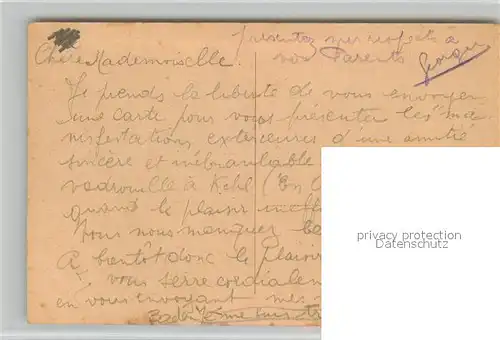 présentez mes respects à
vos Parents
Georges
Chère Mademoiselle.
Je prends la liberté de vous envoyer
une carte pour vous présenter les ma-
nifestations extérieures d'une amitié
sincère et inébranlable
vadrouille à Kehl (En
quand le plaisir
Vous nous manquez
A bientôt donc le plaisir
vous serre cordialem
en vous envoyant mes
privacy protection
Datenschutz